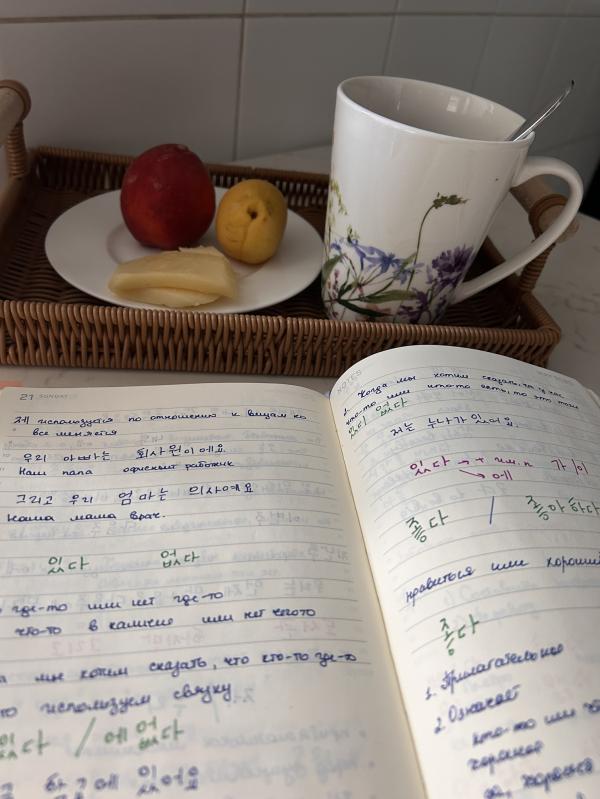 21 SUNDAY
제 используется по отношению к вещам но
все меняется
우리 아빠는 회사원이에요.
Наш папа офисный работник
그리고 우리 엄마는 의사예요
Наша мама врач.
있다 없다
где-то или нет где-то
что-то в наличие или нет чего то
мы хотим сказать, что кто-то где-то
то используем связку
있다 / 에 없다
학교에 있어요
NOTES
2. Когда мы хотим сказать, что у нас
что-то или кто-то есть, то это тоже
있다 없다
저는 누나가 있어요.
있다 → + им.п 가/이
→ 에
좋다 / 좋아하다
нравиться или хороший
좋다
1. Прилагательное
2. Означает
кто-то или
хороший